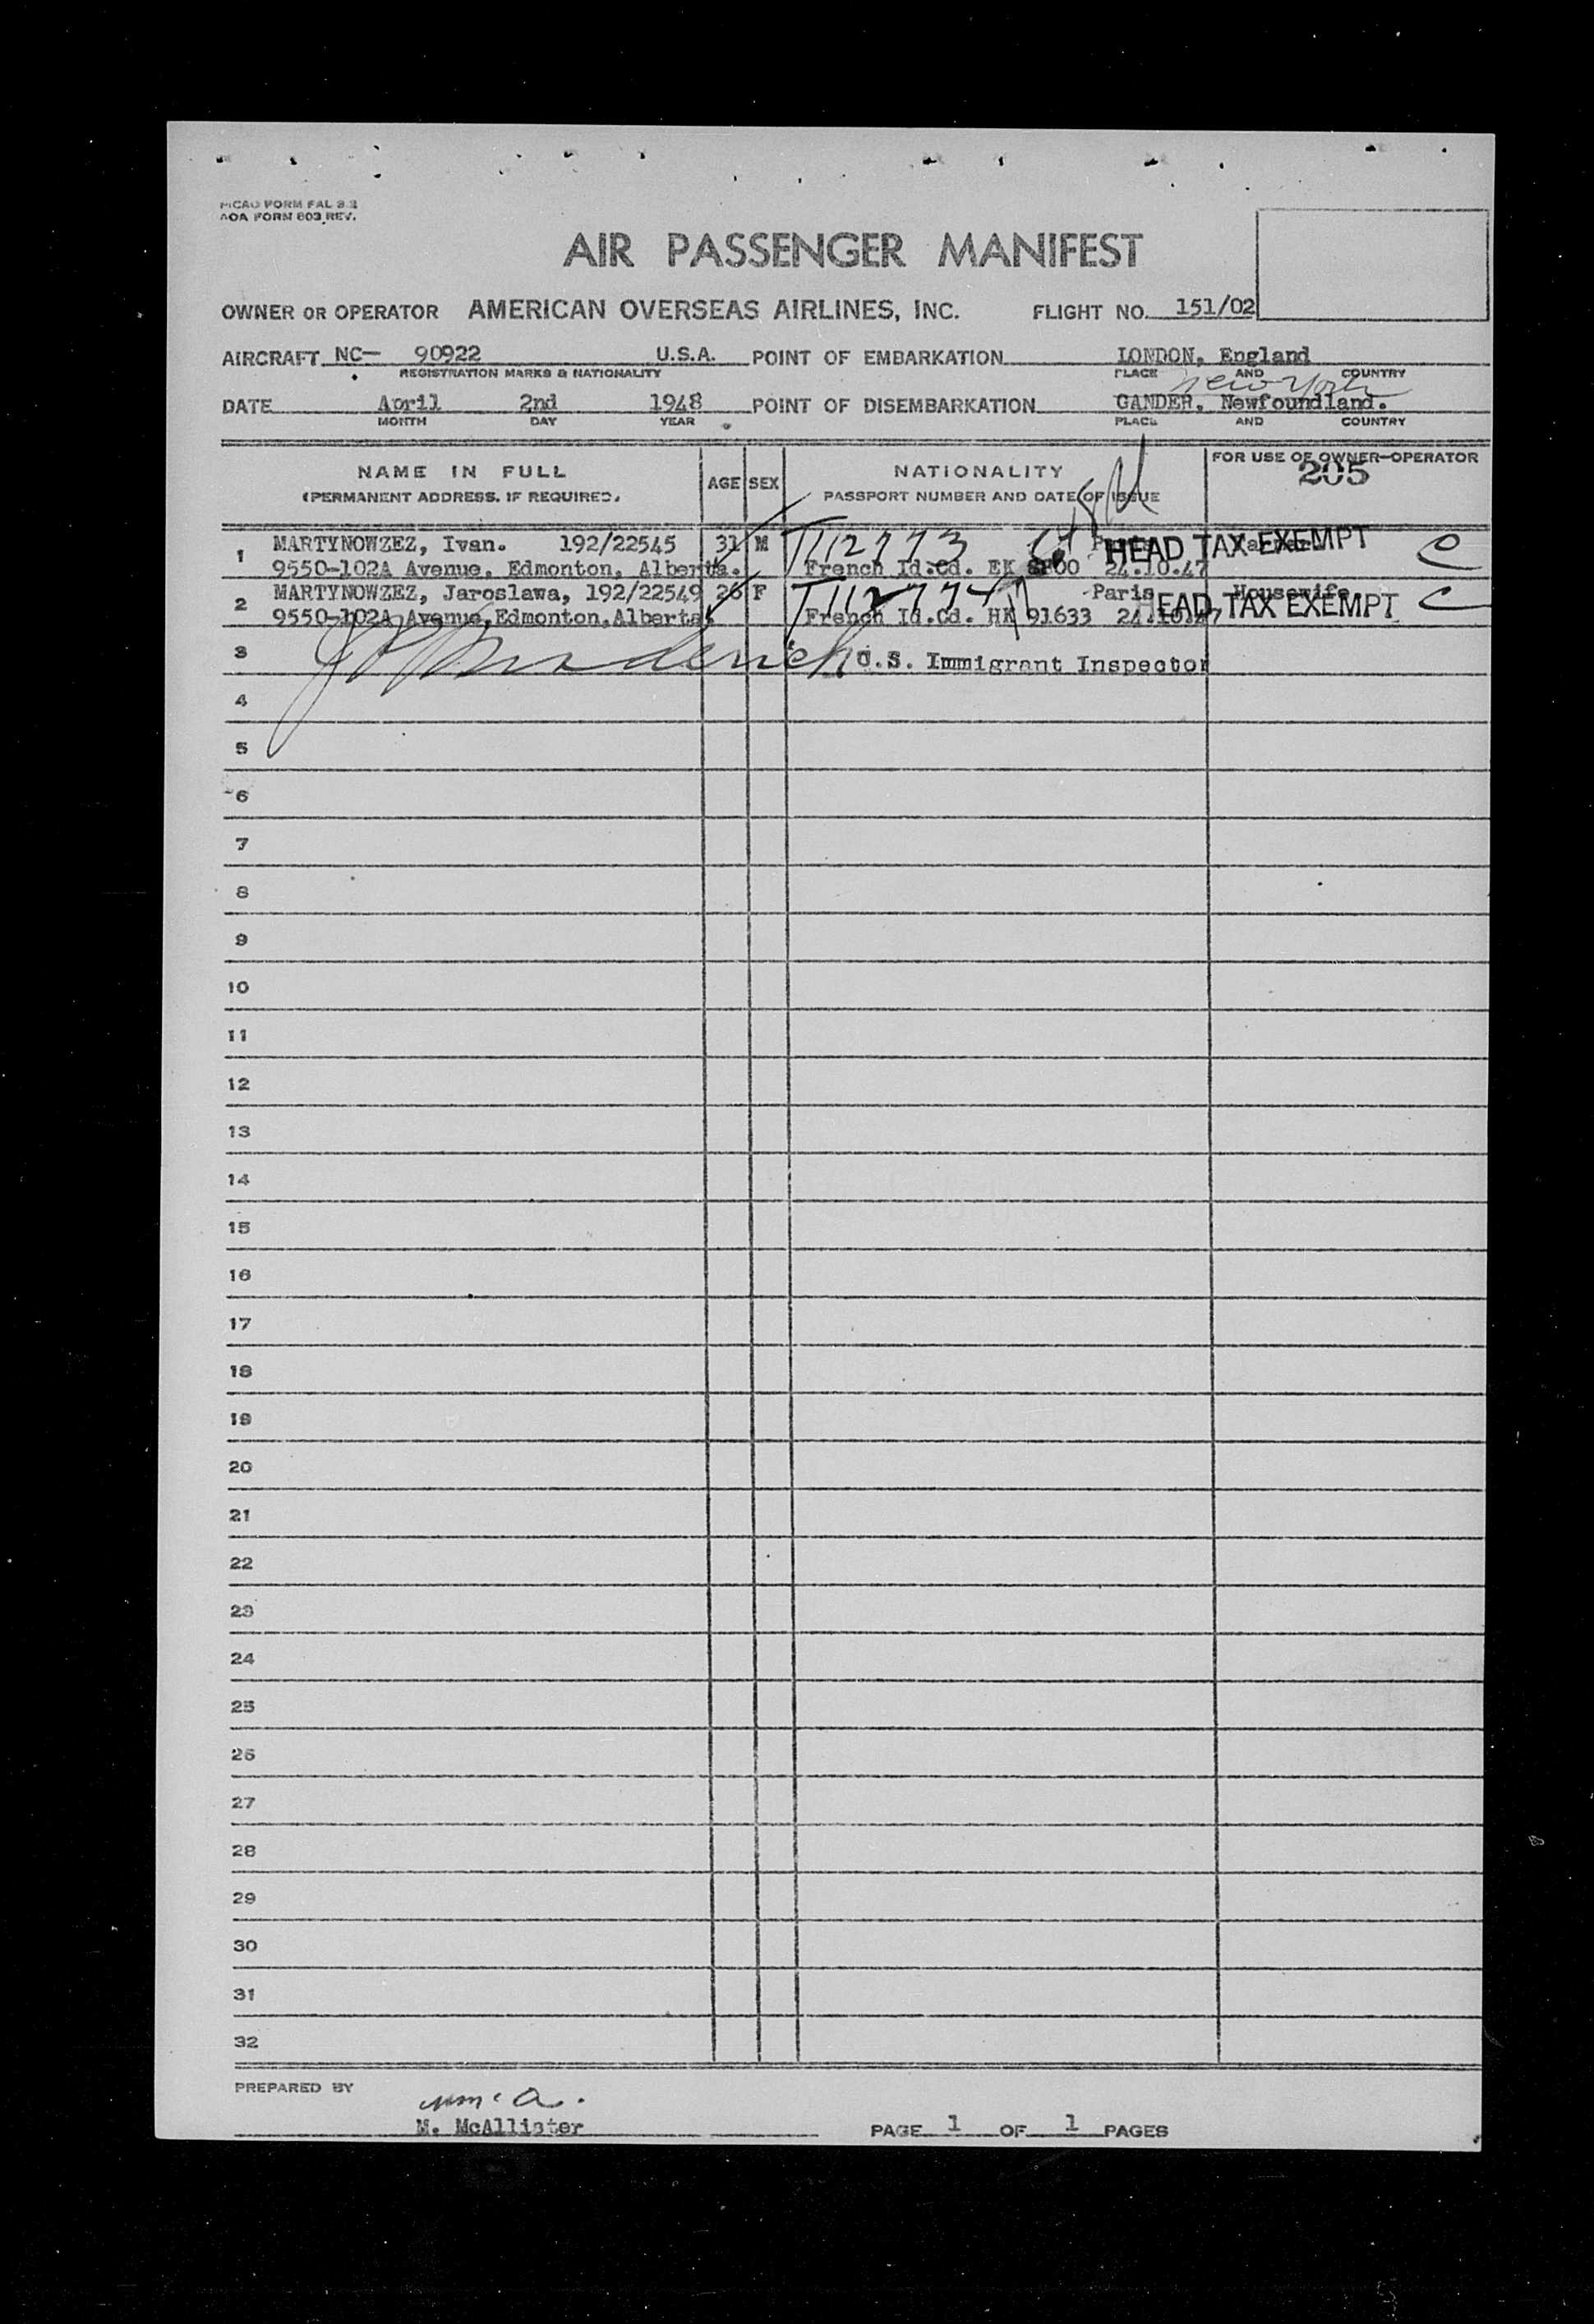 PICAO FORM FAL 3.2
AOA FORM 603 REV.
AIR PASSENGER MANIFEST
OWNER OR OPERATOR AMERICAN OVERSEAS AIRLINES, INC. FLIGHT NO. 151/02
AIRCRAFT NC- 90922 U.S.A. POINT OF EMBARKATION LONDON, England
REGISTRATION MARKS & NATIONALITY PLACE AND COUNTRY
New York
DATE April 2nd 1948 POINT OF DISEMBARKATION GANDER, Newfoundland.
MONTH DAY YEAR PLACE AND COUNTRY
NAME IN FULL AGE SEX NATIONALITY FOR USE OF OWNER-OPERATOR
(PERMANENT ADDRESS, IF REQUIRED) PASSPORT NUMBER AND DATE OF ISSUE 205
1 MARTYNOWZEZ, Ivan. 192/22545 31 M T112773 HEAD TAX EXEMPT C
9550-102A Avenue, Edmonton, Alberta. French Id.Cd. EK 24.10.47
2 MARTYNOWZEZ, Jaroslawa, 192/22549 26 F T112774 Paris Housewife HEAD TAX EXEMPT C
9550-102A Avenue, Edmonton, Alberta. French Id.Cd. HK 91633 24.10.47
3 U.S. Immigrant Inspector
4
5
6
7
8
9
10
11
12
13
14
15
16
17
18
19
20
21
22
23
24
25
26
27
28
29
30
31
32
PREPARED BY
M. McAllister PAGE 1 OF 1 PAGES